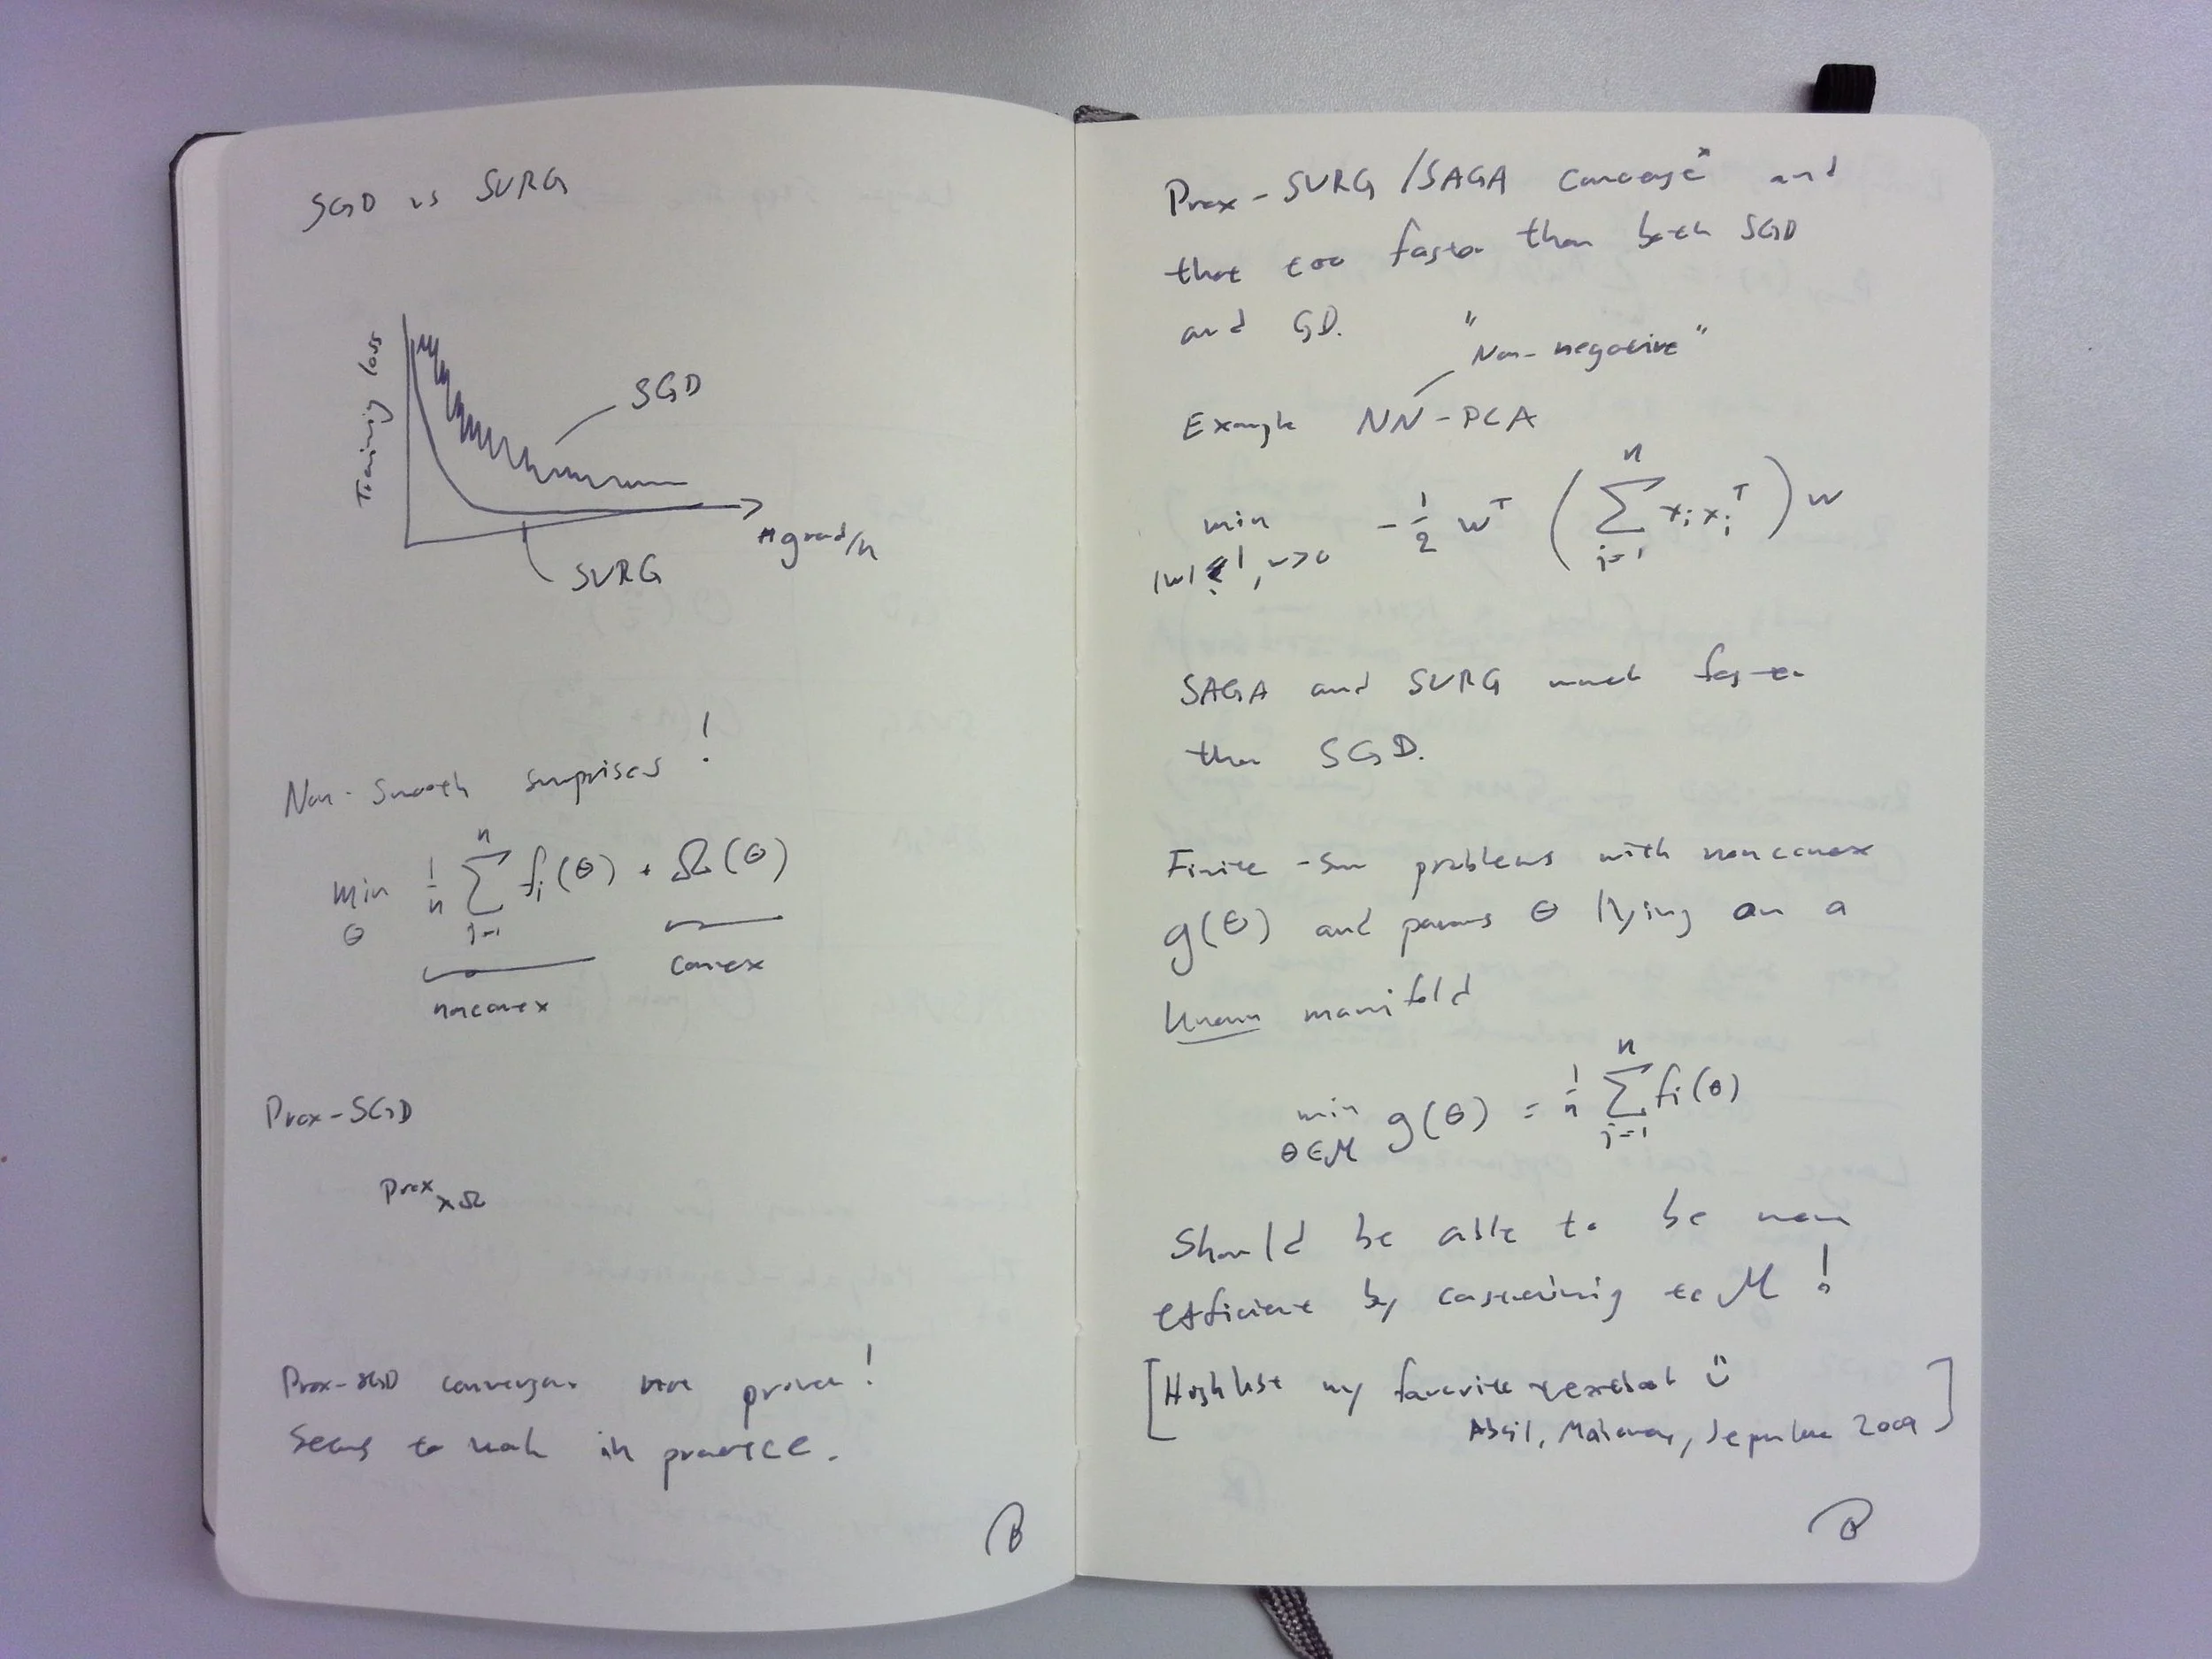 SGD vs SVRG
Training loss
SGD
#grad/n
SVRG
Non-Smooth surprises!
min_θ 1/n ∑_{i=1}^n f_i(θ) + Ω(θ)
nonconvex
convex
Prox-SGD
prox_{λΩ}
Prox-SGD convergence not proven!
Seems to work in practice.
Prox-SVRG/SAGA converge* and
that too faster than both SGD
and GD.
"Non-negative"
Example NN-PCA
min_{|w|≤1, w>0} -1/2 w^T (∑_{i=1}^n x_i x_i^T) w
SAGA and SVRG much faster
than SGD.
Finite-sum problems with nonconvex
g(θ) and params θ lying on a
known manifold
min_{θ∈M} g(θ) = 1/n ∑_{i=1}^n f_i(θ)
Should be able to be more
efficient by constraining to M!
[my favorite textbook ☺
Absil, Mahony, Sepulchre 2009]